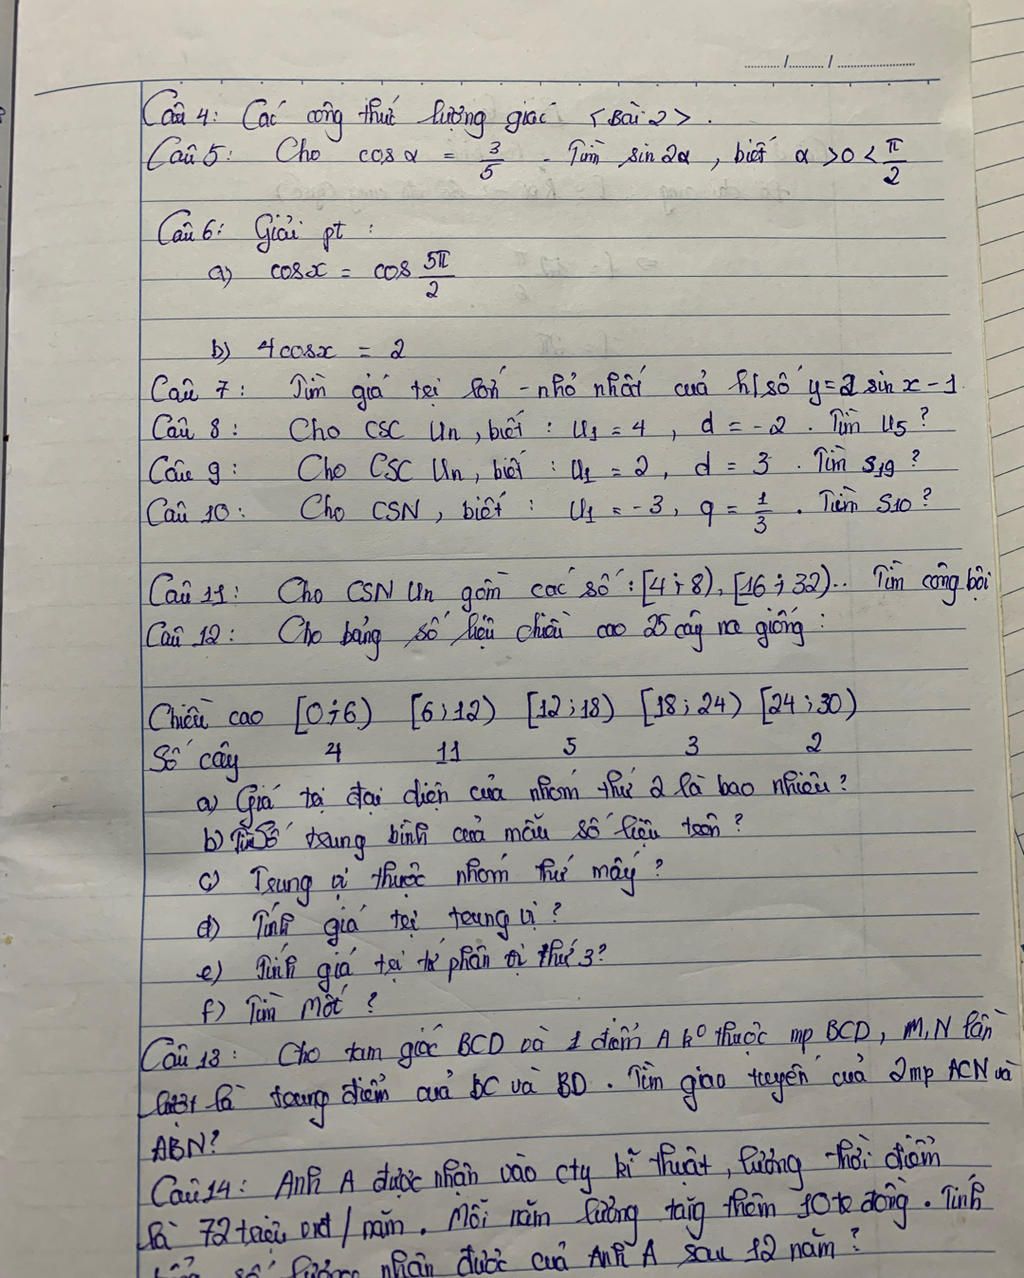 ....../....../..............
Câu 4: Các công thức lượng giác <Bài 2>.
Câu 5: Cho cos α = 3/5 - Tìm sin 2α, biết α > 0 < π/2
Câu 6: Giải pt :
a) cos x = cos 5π/2
b) 4cosx = 2
Câu 7: Tìm giá trị lớn - nhỏ nhất của h/số y = 2 sin x - 1
Câu 8: Cho CSC Un, biết : U1 = 4, d = -2. Tìm U5?
Câu 9: Cho CSC Un, biết : U1 = 2, d = 3. Tìm S19?
Câu 10: Cho CSN, biết : U1 = -3, q = 1/3. Tìm S10?
Câu 11: Cho CSN Un gồm các số : [4;8), [16;32).. Tìm công bội
Câu 12: Cho bảng số liệu chiều cao 25 cây na giống :
Chiều cao [0;6) [6;12) [12;18) [18;24) [24;30)
Số cây 4 11 5 3 2
a) Giá trị đại diện của nhóm thứ 2 là bao nhiêu?
b) Số trung bình của mẫu số liệu trên?
c) Trung vị thuộc nhóm thứ mấy?
d) Tính giá trị trung vị?
e) Tính giá trị tứ phân vị thứ 3?
f) Tìm Mốt?
Câu 13: Cho tam giác BCD và 1 điểm A k° thuộc mp BCD, M, N lần
lượt là trung điểm của BC và BD. Tìm giao tuyến của 2mp ACN và
ABN?
Câu 14: Anh A được nhận vào cty kĩ thuật, lương thời điểm
là 72 triệu vnđ/năm. Mỗi năm lương tăng thêm 10tr đồng. Tính
số lương nhận được của Anh A sau 12 năm?